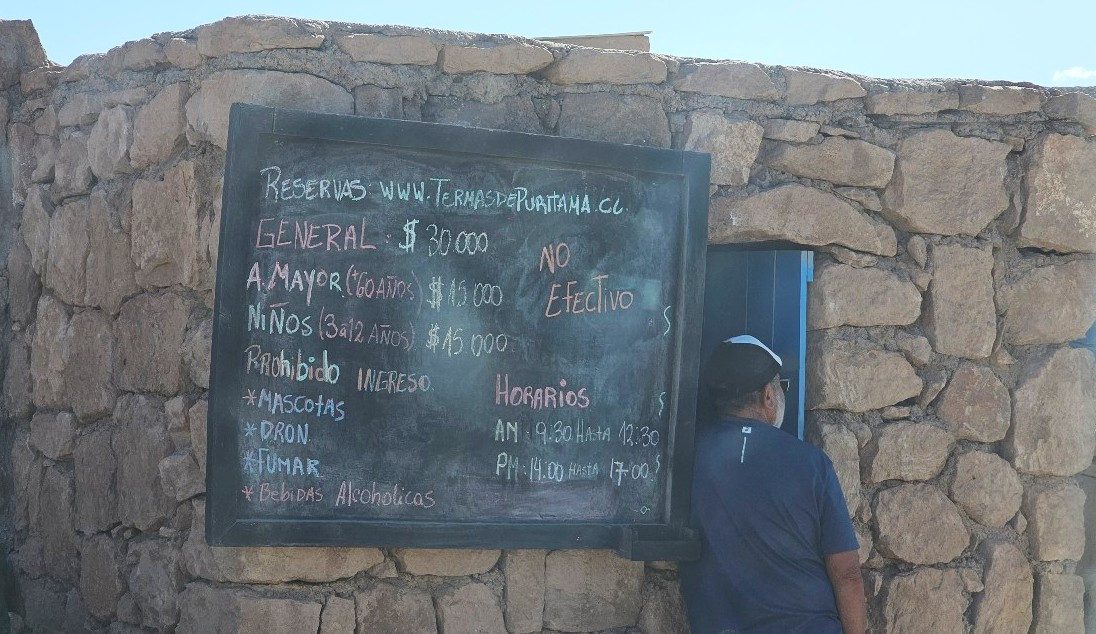 RESERVAS WWW.TERMASDEPURITAMA.CL
GENERAL: $ 30.000
A. MAYOR (+60 AÑOS) $15.000
NIÑOS (3 a 12 AÑOS) $15.000
NO
EFECTIVO
PROhibido INGRESO
*MASCOTAS
*DRON
*FUMAR
*Bebidas Alcoholicas
HORARIOS
AM: 9:30 HASTA 12:30
PM: 14:00 HASTA 17:00